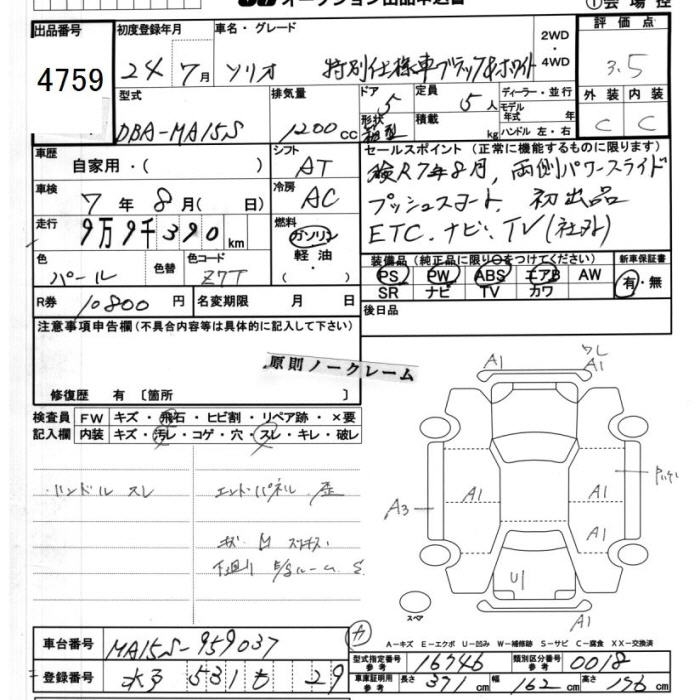 オークション出品申込書
①会場控
出品番号 4759
初度登録年月 24年 7月
車名・グレード ソリオ 特別仕様車ブラック&ホワイト
2WD・4WD
評価点 3.5
型式 DBA-MA15S
排気量 1200cc
ドア 5 形状 箱型
定員 5人
積載 kg
ディーラー・並行
モデル年式 年式
ハンドル 左・右
外装 C 内装 C
車歴 自家用・( )
シフト AT
セールスポイント (正常に機能するものに限ります)
検R7年8月, 両側パワースライド
プッシュスタート, 初出品
ETC. ナビ. TV (社外)
車検 7年 8月( 日)
冷房 AC
走行 9万9千390km
燃料 ガソリン 軽油・( )
色 パール 色替 色コード Z7T
装備品 (純正品に限り○をつけてください)
PS PW ABS エアB AW
SR ナビ TV カワ
新車保証書 有・無
R券 10800円
名変期限 月 日
後日品
注意事項申告欄 (不具合内容等は具体的に記入して下さい)
原則ノークレーム
修復歴 有 〔箇所 〕
検査員記入欄
FW キズ・飛石・ヒビ割・リペア跡・×要
内装 キズ・汚レ・コゲ・穴・スレ・キレ・破レ
ハンドル スレ
エンドパネル 歪
下廻り
A1 A1
A3 A1 A1
A1
U1
A1
スペア
A-キズ E-エクボ U-凹み W-補修跡 S-サビ C-腐食 XX-交換済
車台番号 MA15S-959037
型式指定番号 参考 16746
類別区分番号 参考 0018
登録番号 531 も 29
車庫証明用 参考 長さ 371cm 幅 162cm 高さ 176cm